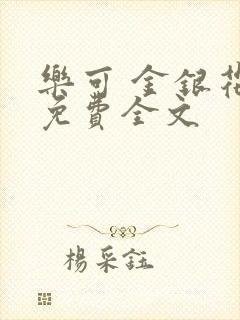 樂可 金銀花
免費全文
楊采鈺